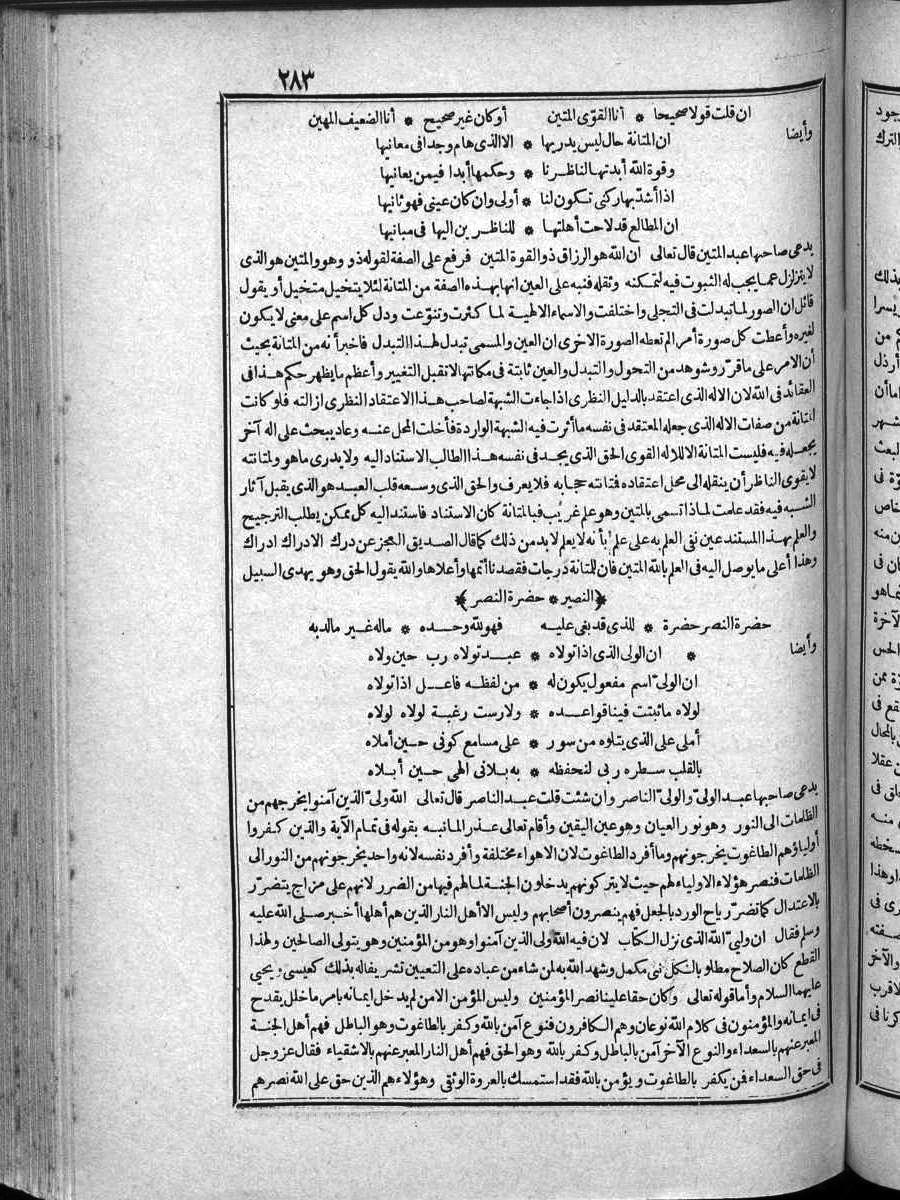 ٢٨٣
ان قلت قولا صحيحا * أنا القوىّ المتين أو كان غير صحيح * أنا الضعيف المهين
وأيضا
ان المتانة حال ليس يدريها * الا الذى هام وجدا فى معانيها
وقوة الله أبدتها لناظرنا * وحكمها أبدا فيمن يعانيها
اذا أشدّ بها ركنى تكون لنا * أولى وان كان عينى فهو ثانيها
ان المطالع قد لاحت أهلتها * للناظرين اليها فى مبانيها
يدعى صاحبها عبد المتين قال تعالى ان الله هو الرزاق ذو القوة المتين فرفع على الصفة لقوله ذو وهو والمتين هو الذى
لا يتزلزل عما يجب له الثبوت فيه لتمكنه وثقله فنبه على العين انها بهذه الصفة من المتانة لئلا يتخيل متخيل أو يقول
قائل ان الصور لما تبدلت فى التجلى واختلفت والاسماء الالهية لما كثرت وتنوّعت ودل كل اسم على معنى لا يكون
لغيره وأعطت كل صورة أمرا لم تعطه الصورة الاخرى ان العين والمسمى تبدل لهذا التبدل فاخبر أنه من المتانة بحيث
أن الامر على ما قرّر وشوهد من التحول والتبدل والعين ثابتة فى مكانتها لا تقبل التغيير وأعظم ما يظهر حكم هذا فى
العقائد فى الله لان الاله الذى اعتقد بالدليل النظرى اذا جاءت الشبهة لصاحب هذا الاعتقاد النظرى ازالته فلو كانت
المتانة من صفات الاله الذى جعله المعتقد فى نفسه ما أثرت فيه الشبهة الواردة فأخلت المحل عنه وعاد يبحث على اله آخر
يجعله فيه فليست المتانة الا للاله القوى الحق الذى يجد فى نفسه هذا الطالب الاستناد اليه ولا يدرى ما هو ولمتانته
لا يقوى الناظر أن ينقله الى محل اعتقاده فتانته حجابه فلا يعرف والحق الذى وسعه قلب العبد هو الذى يقبل آثار
الشبه فيه فقد علمت لماذا تسمى بالمتين وهو علم غريب فبالمتانة كان الاستناد فاستند اليه كل ممكن يطلب الترجيح
والعلم بهذا المستند عين نفى العلم به على علم بأنه لا يعلم لا بد من ذلك كما قال الصديق العجز عن درك الادراك ادراك
وهذا أعلى ما يوصل اليه فى العلم بالله المتين فان للمتانة درجات فقصدنا أتمها وأعلاها والله يقول الحق وهو يهدى السبيل
﴿النصير * حضرة النصر﴾
حضرة النصر حضرة * للذى قد بغى عليه فهو لله وحده * ماله غير مالديه
وأيضا
* ان الولى الذى اذا تولاه * عبد تولاه رب حين ولاه
ان الولىّ اسم مفعول يكون له * من لفظه فاعل اذا تولاه
لولاه ما ثبتت فينا قواعده * ولا رست رغبة لولاه لولاه
أملى على الذى يتلوه من سور * على مسامع كونى حين أملاه
بالقلب سطره ربى لنحفظه * به بلانى الهى حين أبلاه
يدعى صاحبها عبد الولىّ والولىّ الناصر وان شئت قلت عبد الناصر قال تعالى الله ولىّ الذين آمنوا يخرجهم من
الظلمات الى النور وهو نور العيان وهو عين اليقين وأقام تعالى عذر المانبه بقوله فى تمام الآية والذين كفروا
أولياؤهم الطاغوت يخرجونهم وما أفرد الطاغوت لان الاهواء مختلفة وأفرد نفسه لانه واحد يخرجونهم من النور الى
الظلمات فنصر هؤلاء الاولياء لهم حيث لا يتركونهم يدخلون الجنة لما لهم فيها من الضرر لانهم على مزاج يتضرّر
بالاعتدال كما تضرّ رياح الورد بالجعل فهم ينصرون أصحابهم وليس الا أهل النار الذين هم أهلها أخبر صلى الله عليه
وسلم فقال ان وليىّ الله الذى نزل الكتاب لان فيه الله ولى الذين آمنوا وهو من المؤمنين وهو يتولى الصالحين ولهذا
القطع كان الصلاح مطلوبا لكل نبى مكمل وشهد الله به لمن شاء من عباده على التعيين تشريفا له بذلك كعيسى ويحيى
عليهما السلام وأما قوله تعالى وكان حقا علينا نصر المؤمنين وليس المؤمن الا من لم يدخل ايمانه بامر ما خلل يقدح
فى ايمانه والمؤمنون فى كلام الله نوعان وهم الكافرون فنوع آمن بالله وكفر بالطاغوت وهو الباطل فهم أهل الجنة
المعبر عنهم بالسعداء والنوع الآخر آمن بالباطل وكفر بالله وهو الحق فهم أهل النار المعبر عنهم بالاشقياء فقال عز وجل
فى حق السعداء فمن يكفر بالطاغوت ويؤمن بالله فقد استمسك بالعروة الوثقى وهؤلاء هم الذين حق على الله نصرهم